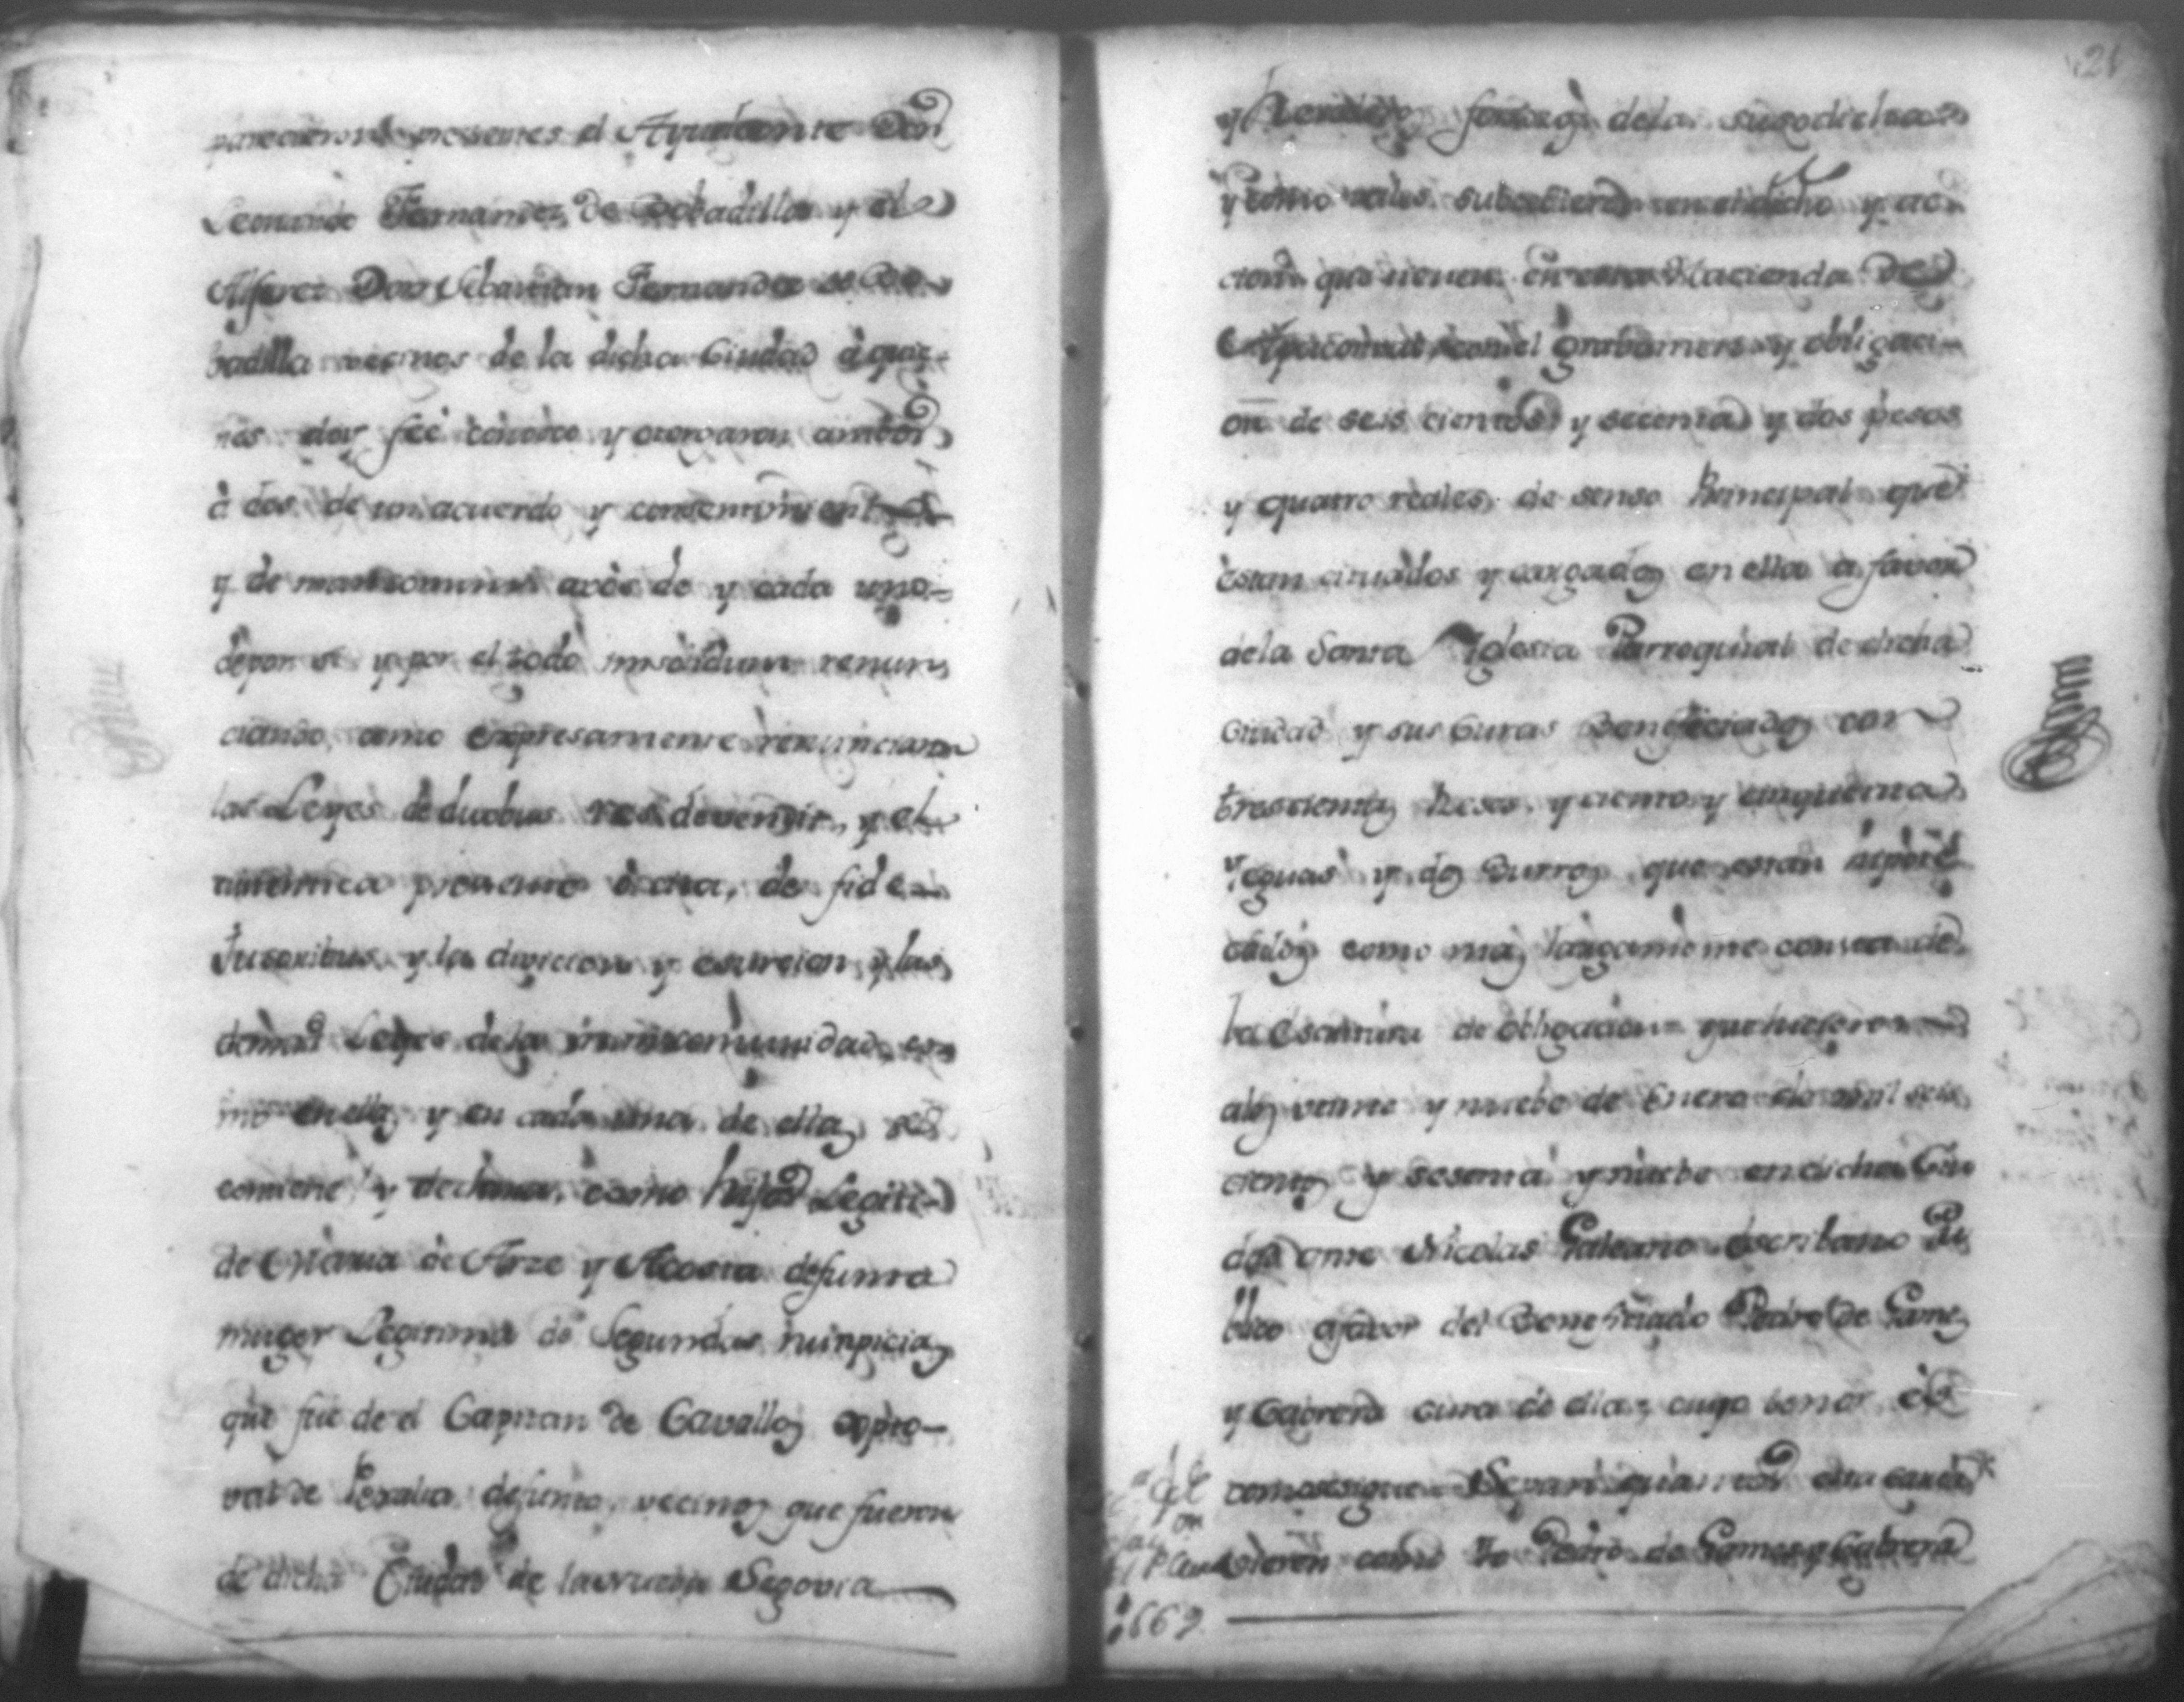 parecieron presentes el Ayudante Don
Leonardo Fernandez de Bobadilla y el
Alferez Don Sebastian Fernandez de Bo-
badilla vecinos de la dicha Ciudad à quie-
nes doy feè conòsco y otorgaron ambos
à dos de un acuerdo y consentimiento
y de mancomun avòs de y cada uno
depor si y por el todo insolidum renun
ciando, como expresamente renunciaron
las Leyes de duobus res devendi, y el
autentica presente òcita, de fide
Jusoribus y la divicion y escurcion y las
demas Leyes de la mancomunidad, co
mo en ellas y en cada una de ellas se
contiene y declara, como hijos Legiti-
de Maria de Arze y Acosta defunta
muger Legitima de Segundas nuncpicias
que fue de el Capitan de Cavallos
de Peralta defunto, vecinos que fueron
de dicha Ciudad de la nueva Segovia
21
y de la susodicha
y como tales en el dicho y ac-
cion que tienen en esta Hacienda de
con el grabamen y obligaci-
on de seis cientos y secenta y dos pesos
y quatro reales de senso Principal que
estan cituados y cargados en ella a favor
dela Santa Iglesia Parroquial de dicha
Ciudad y sus Curas Beneficiados con
trescientas Reses y ciento y cinquenta
Yeguas y dos Burros que estan
como mas largamente consta de
la Escritura de obligacion que hicieron
alos veinte y nuebe de Enero de mil seis
cientos y sesenta y nuebe en dicha Ciu
dad ante Nicolas Galeano Escribano Pu
blico afavor del Beneficiado Pedro de Games
y Cabrera cura de ella, cuyo tenor es
como sigue Sepan quantos esta carta
vieren como Yo Pedro de Games y Cabrera
1669